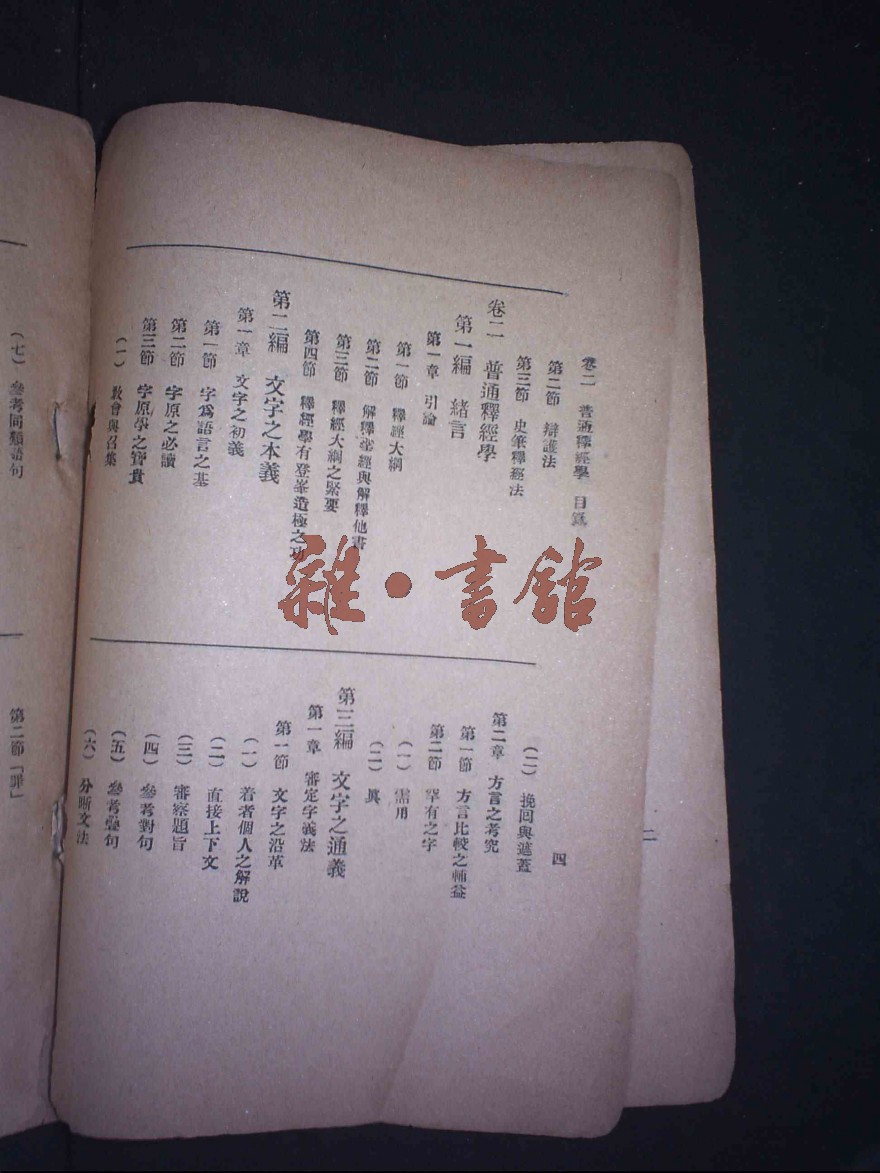 卷二 普通釋經學 目錄
第二節 辯護法
第三節 史筆釋經法
卷二 普通釋經學
第一編 緒言
第一章 引論
第一節 釋經大綱
第二節 解釋聖經與解釋他書
第三節 釋經大綱之緊要
第四節 釋經學有登峯造極之功
第二編 文字之本義
第一章 文字之初義
第一節 字爲語言之基
第二節 字原之必讀
第三節 字原學之寶貴
（一） 敎會與召集
四
（二） 挽回與遮蓋
第二章 方言之考究
第一節 方言比較之輔益
第二節 罕有之字
（一） 需用
（二） 眞
第三編 文字之通義
第一章 審定字義法
第一節 文字之沿革
（一） 着者個人之解說
（二） 直接上下文
（三） 審察題旨
（四） 參考對句
（五） 參考疊句
（六） 分晰文法
（七） 參考同類語句
第二節「罪」
二
雜·書館